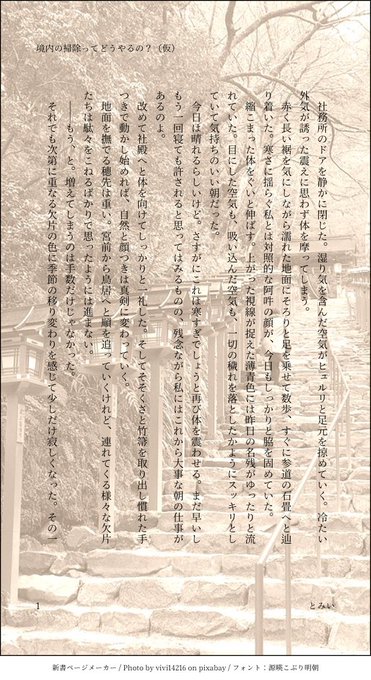 境内の掃除ってどうやるの？（仮）
社務所のドアを静かに閉じた。湿り気を含んだ空気がヒュルリと足元を掠めていく。冷たい
外気が誘った震えに思わず体を摩ってしまう。
赤く長い裾を気にしながら濡れた地面にそろりと足を乗せて数歩、すぐに参道の石畳へと辿
り着いた。寒さに揺らぐ私とは対照的な阿吽の顔が、今日もしっかりと脇を固めていた。
縮こまった体をぐいと伸ばす。上がった視線が捉えた薄青色には昨日の名残がゆったりと流
れていた。目にした空気も、吸い込んだ空気も、一切の穢れを落としたかようにスッキリをし
ていて気持ちのいい朝だった。
今日は晴れるらしいけど、さすがにこれは寒すぎでしょうと再び体を震わせる。まだ早いし
もう一回寝ても許されると思ってはみるものの、残念ながら私にはこれから大事な朝の仕事が
あるのよ。
改めて社殿へと体を向けてしっかりと一礼した。そしてそそくさと竹箒を取り出し慣れた手
つきで動かし始めれば、自然と顔つきは真剣に変わっていく。
地面を撫でる穂先は重い。宮前から鳥居へと順を追っていくけれど、連れてくる様々な欠片
たちは駄々をこねるばかりで思ったようには進まない。
――もう、っと。増えてしまうのは手数だけじゃなかった。
それでも次第に重なる欠片の色に季節の移り変わりを感じて少しだけ寂しくなった。その一
1
とみい
新書ページメーカー / Photo by vivi14216 on pixabay / フォント：源暎こぶり明朝